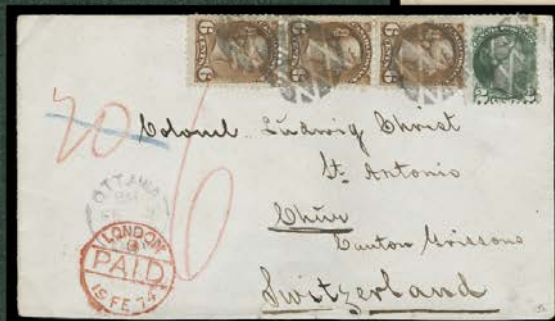 20 6
Colonel Ludwig Christ
St. Antonio
Chur
Canton Grissons
Switzerland
OTTAWA
LONDON
PAID
15 FE 74